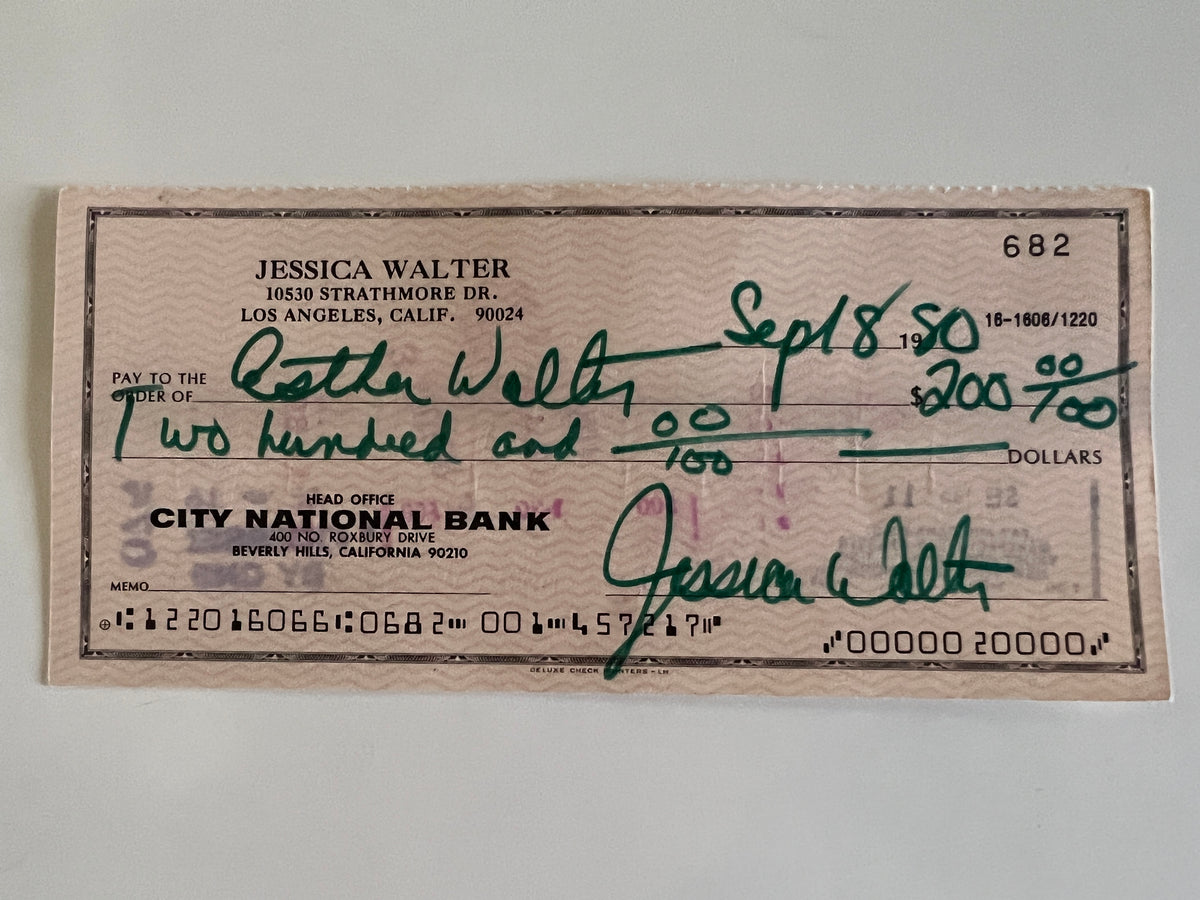 682
JESSICA WALTER
10530 STRATHMORE DR.
LOS ANGELES, CALIF. 90024
Sept 8 1980 16-1606/1220
PAY TO THE
ORDER OF Esther Walter $200 00/100
Two hundred and 00/100 DOLLARS
HEAD OFFICE
CITY NATIONAL BANK
400 NO. ROXBURY DRIVE
BEVERLY HILLS, CALIFORNIA 90210
MEMO Jessica Walter
⑆122016066⑆0682⑈ 001⑈457217⑈ ⑇0000020000⑇
DELUXE CHECK PRINTERS - LH